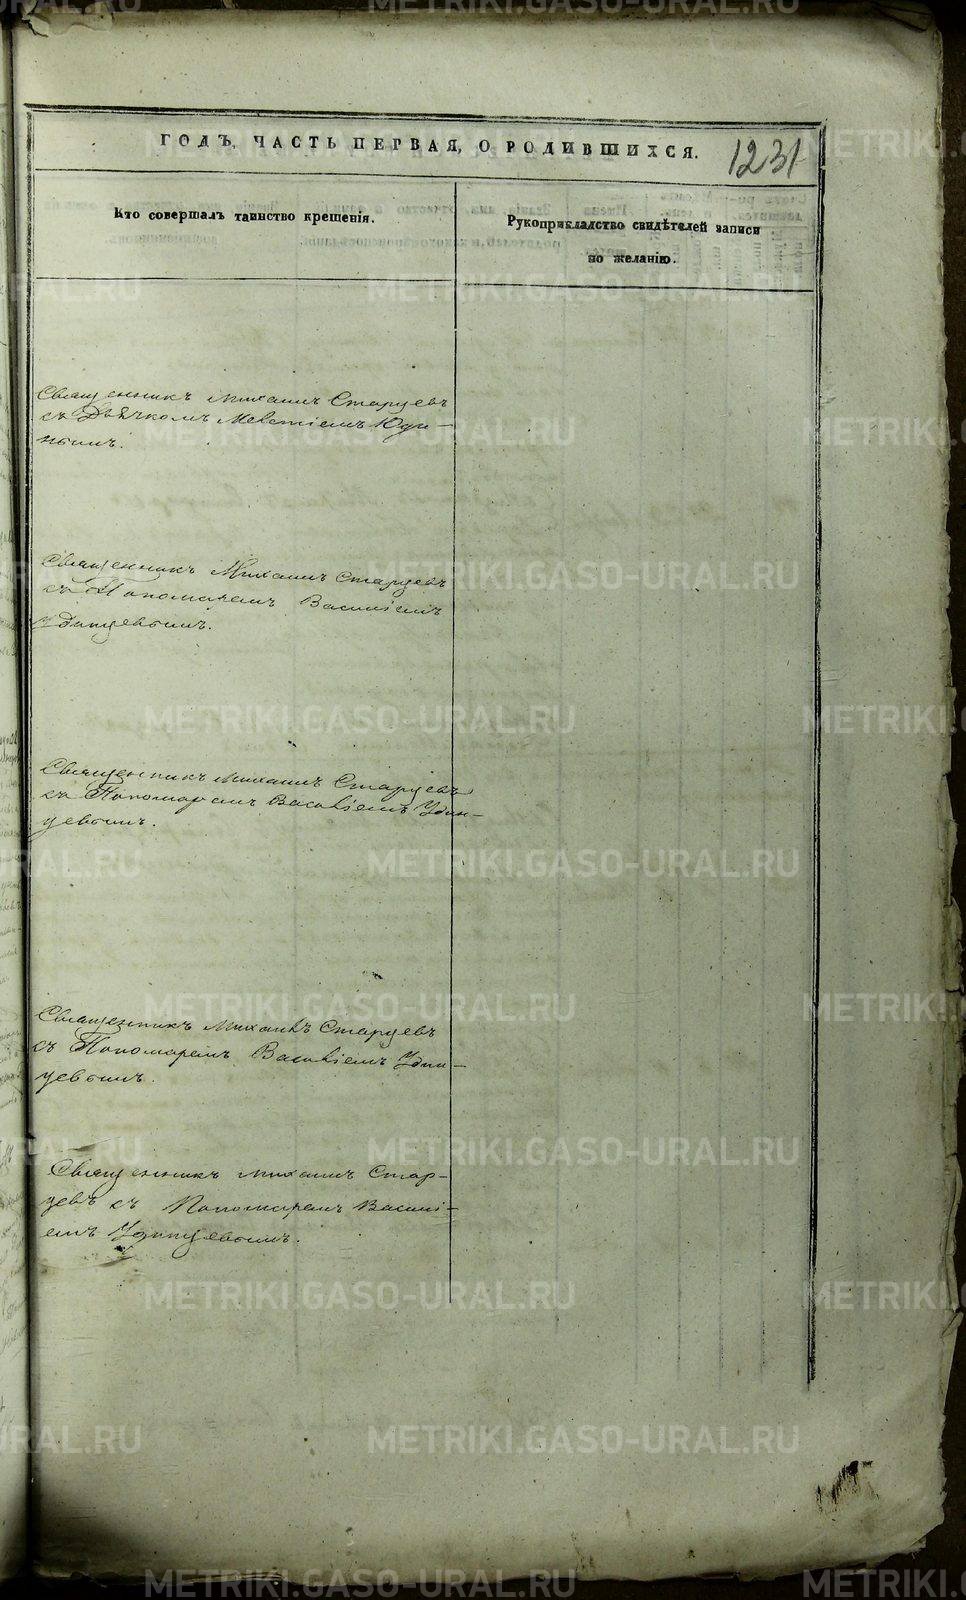 ГОДЪ, ЧАСТЬ ПЕРВАЯ, О РОДИВШИХСЯ.
1231
Кто совершалъ таинство крещенія.
Рукоприкладство свидѣтелей записи
по желанію.
Священникъ Михаилъ Старцевъ
съ Дьячкомъ Мелетіемъ Юди-
нымъ.
Священникъ Михаилъ Старцевъ
съ Пономаремъ Василіемъ
Удинцевымъ.
Священникъ Михаилъ Старцевъ
съ Пономаремъ Василіемъ Удин-
цевымъ.
Священникъ Михаилъ Старцевъ
съ Пономаремъ Василіемъ Удин-
цевымъ.
Священникъ Михаилъ Стар-
цевъ съ Пономаремъ Василі-
емъ Удинцевымъ.
METRIKI.GASO-URAL.RU